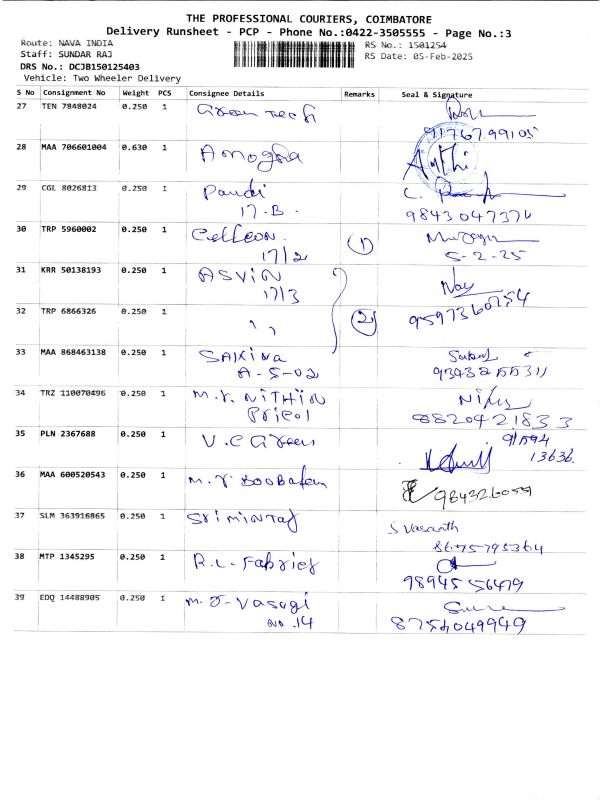 THE PROFESSIONAL COURIERS, COIMBATORE
Delivery Runsheet - PCP - Phone No.:0422-3505555 - Page No.:3
Route: NAVA INDIA
RS No.: 1501254
Staff: SUNDAR RAJ
RS Date: 05-Feb-2025
DRS No.: DCJB150125403
Vehicle: Two Wheeler Delivery
S No Consignment No Weight PCS Consignee Details Remarks Seal & Signature
27 TEN 7848024 0.250 1 Green Tech
28 MAA 706601004 0.630 1 Amogha
29 CGL 8026813 0.250 1 Pandi
17.B. 9843047376
30 TRP 5960002 0.250 1 Celleon. 1
17/2 5-2-25
31 KRR 50138193 0.250 1 ASVIN
17/3
32 TRP 6866326 0.250 1 " 2 9597360754
33 MAA 868463138 0.250 1 SAKINA
A-5-02
34 TRZ 110070496 0.250 1 M.r. NITHIN
Pricol 8820421833
35 PLN 2367688 0.250 1 V.C Green 91594
13636
36 MAA 600520543 0.250 1 M.r
37 SLM 363916865 0.250 1 S Vasanth
38 MTP 1345295 0.250 1 R.L. Fabrics
98945 56479
39 EDQ 14488905 0.250 1 Vasugi
No. 14 8754049949